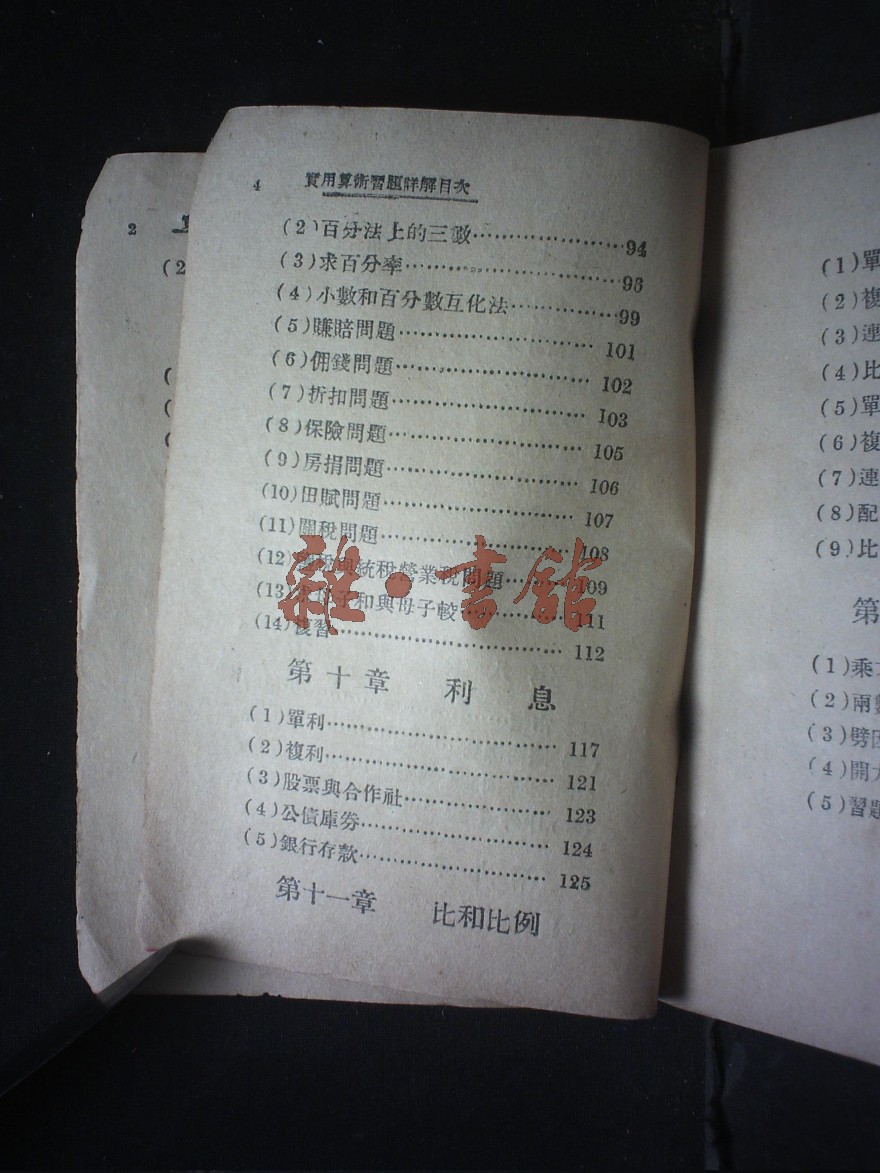 4 實用算術習題詳解目次
(2)百分法上的三數……94
(3)求百分率……96
(4)小數和百分數互化法……99
(5)賺賠問題……101
(6)佣錢問題……102
(7)折扣問題……103
(8)保險問題……105
(9)房捐問題……106
(10)田賦問題……107
(11)關稅問題……108
(12)統稅營業稅問題……109
(13)子和與母子較……111
(14)複習……112
第十章 利息
(1)單利……117
(2)複利……121
(3)股票與合作社……123
(4)公債庫券……124
(5)銀行存款……125
第十一章 比和比例
雜·書館
2
(2
(1)單
(2)複
(3)連
(4)比
(5)單
(6)複
(7)連
(8)配
(9)比
第
(1)乘
(2)兩數
(3)劈因
(4)開
(5)習題